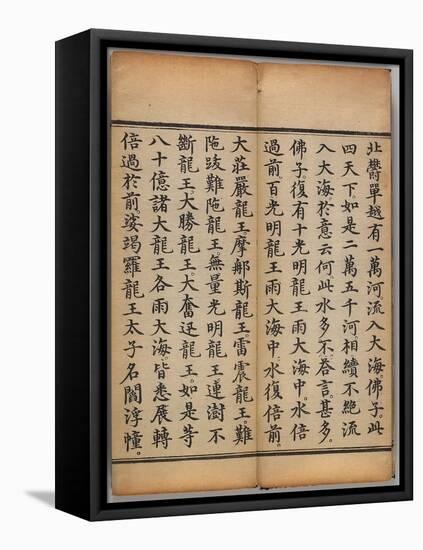 北鬱單越有一萬河。流入大海。佛子。此
四天下。如是二萬五千河。相續不絕。流
入大海。於意云何。此水多不。荅言。甚多。
佛子。復有十光明龍王。雨大海中。水倍
過前。百光明龍王。雨大海中。水復倍前。
大莊嚴龍王。摩郍斯龍王。雷震龍王。難
陁跋難陁龍王。無量光明龍王。連澍不
斷龍王。大勝龍王。大奮迅龍王。如是等
八十億諸大龍王。各雨大海。皆悉展轉
倍過於前。娑竭羅龍王太子。名閻浮幢。